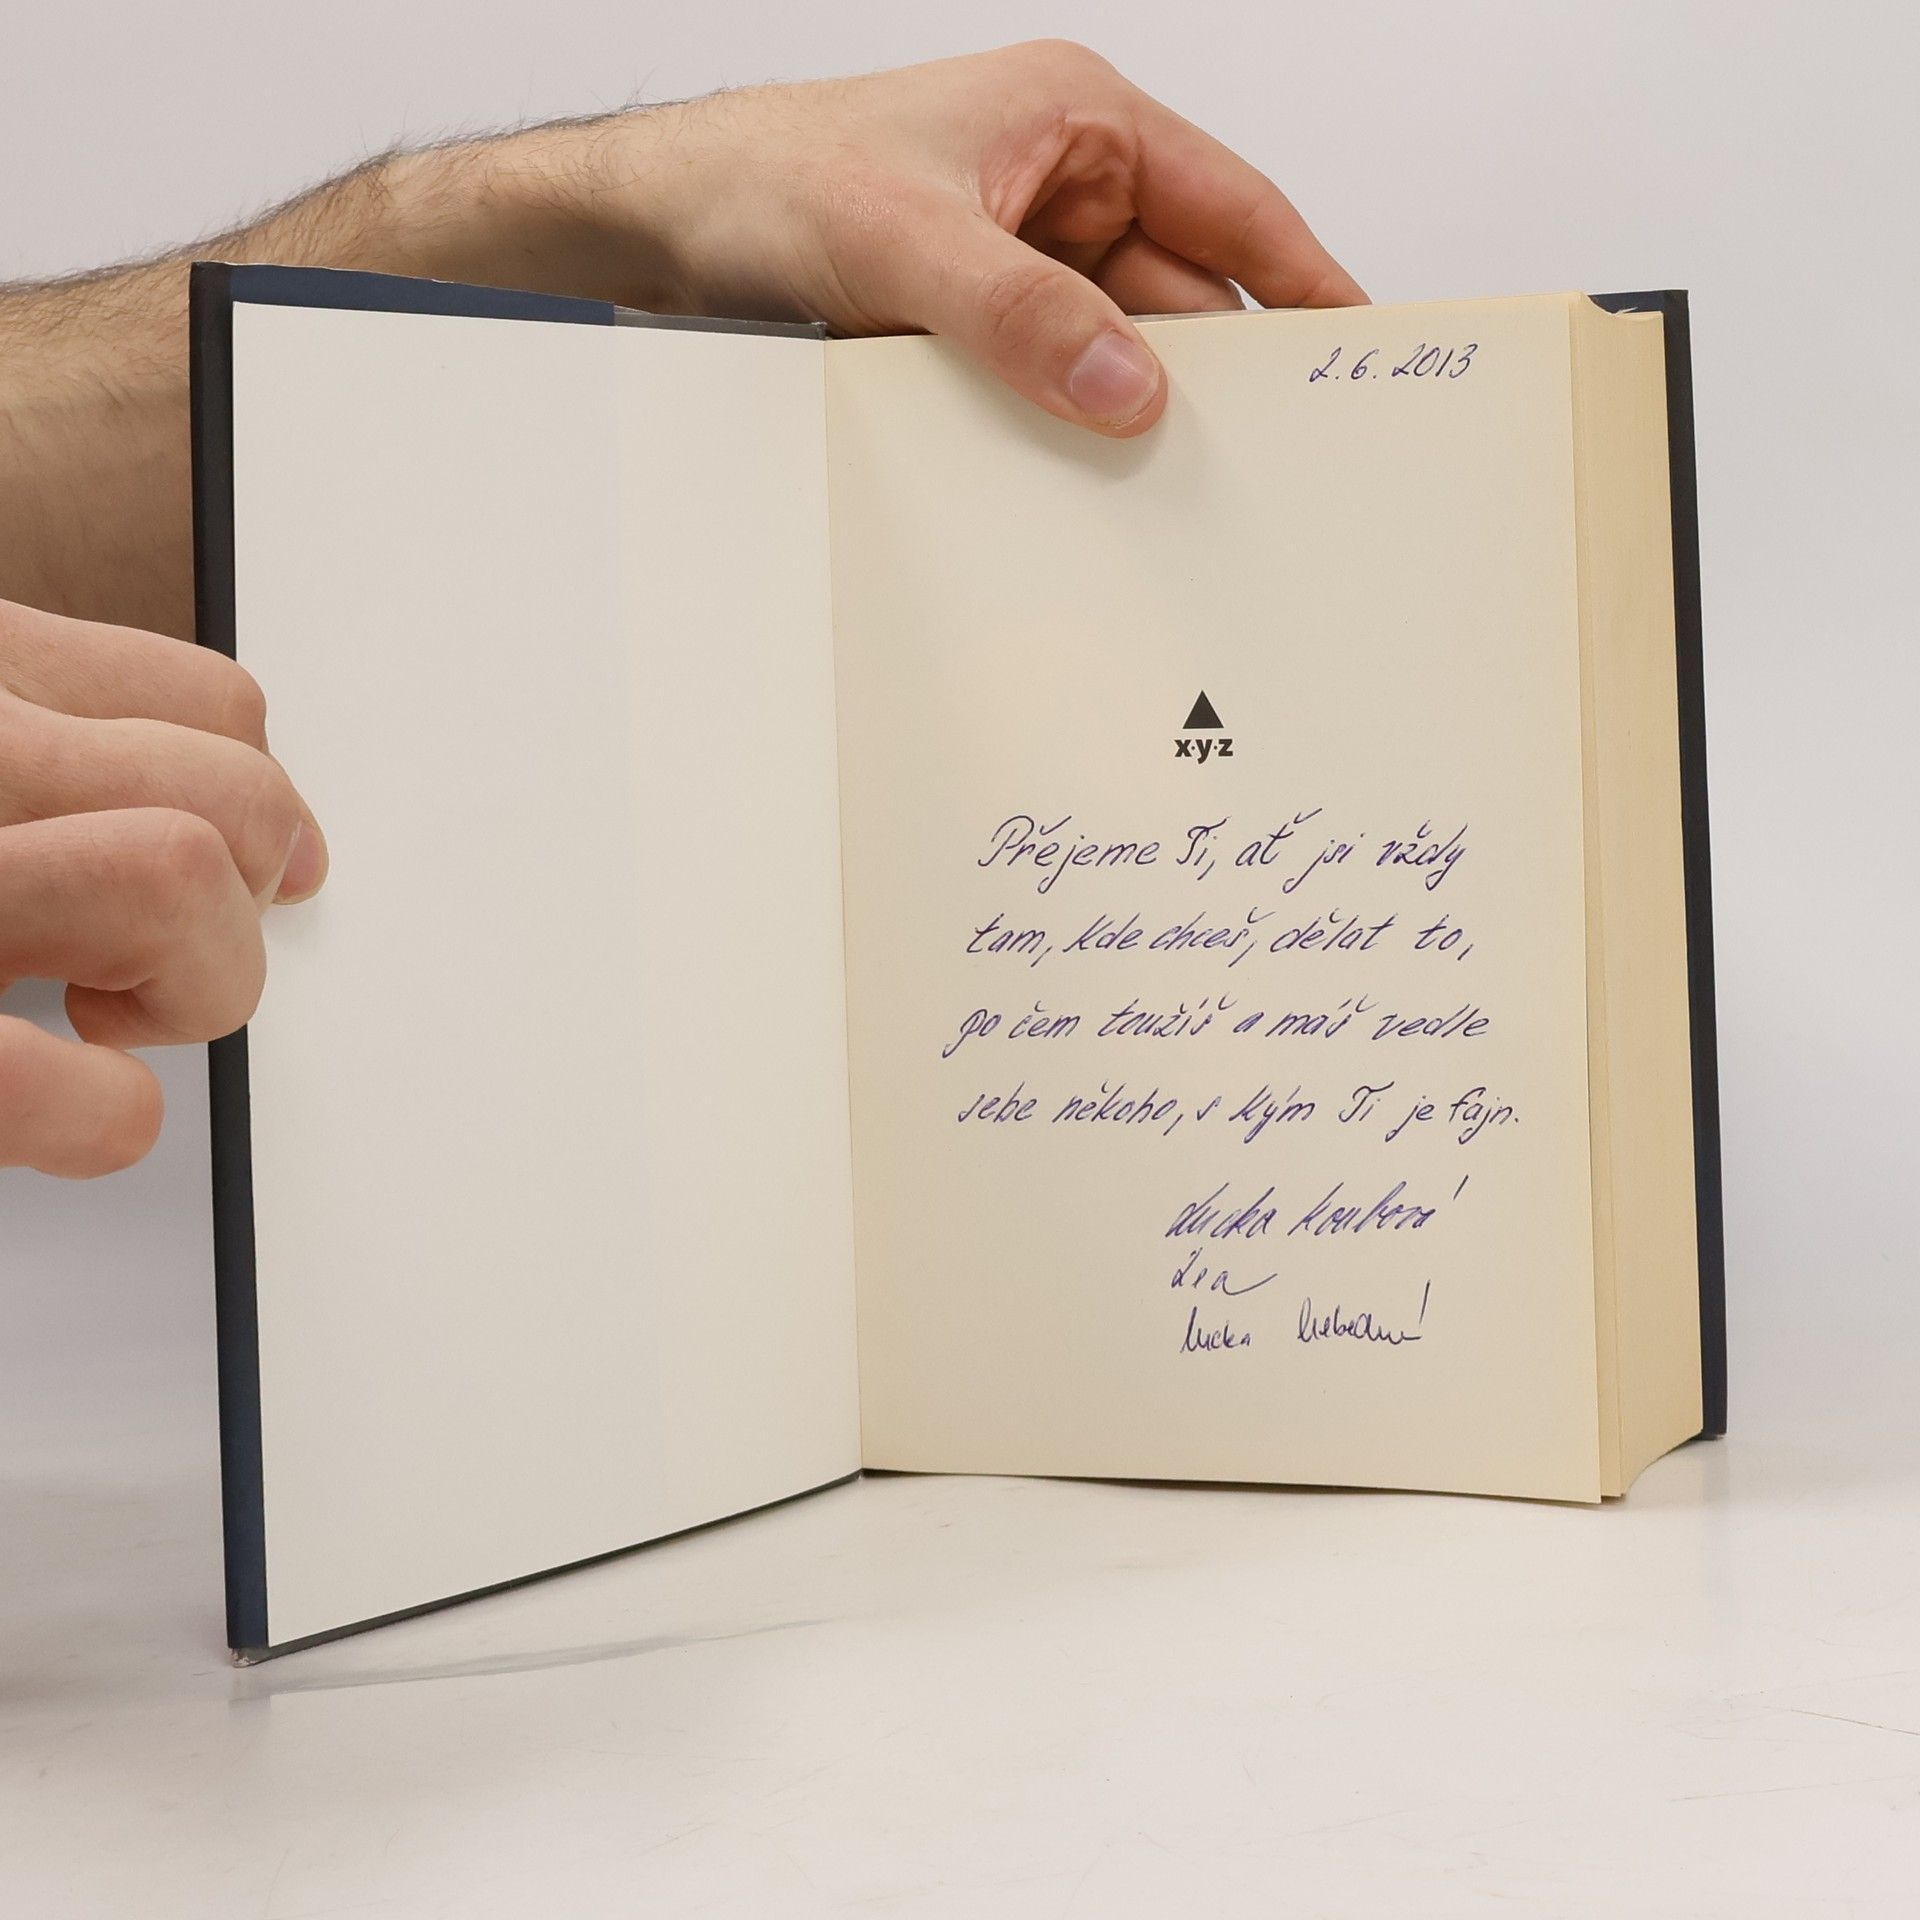 2.6.2013
x·y·z
Přejeme Ti, ať jsi vždy
tam, kde chceš, dělat to,
po čem toužíš a máš vedle
sebe někoho, s kým Ti je fajn.
Lucka Koubová
Lea
Lucka